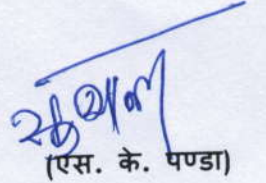 (एस. के. पण्डा)